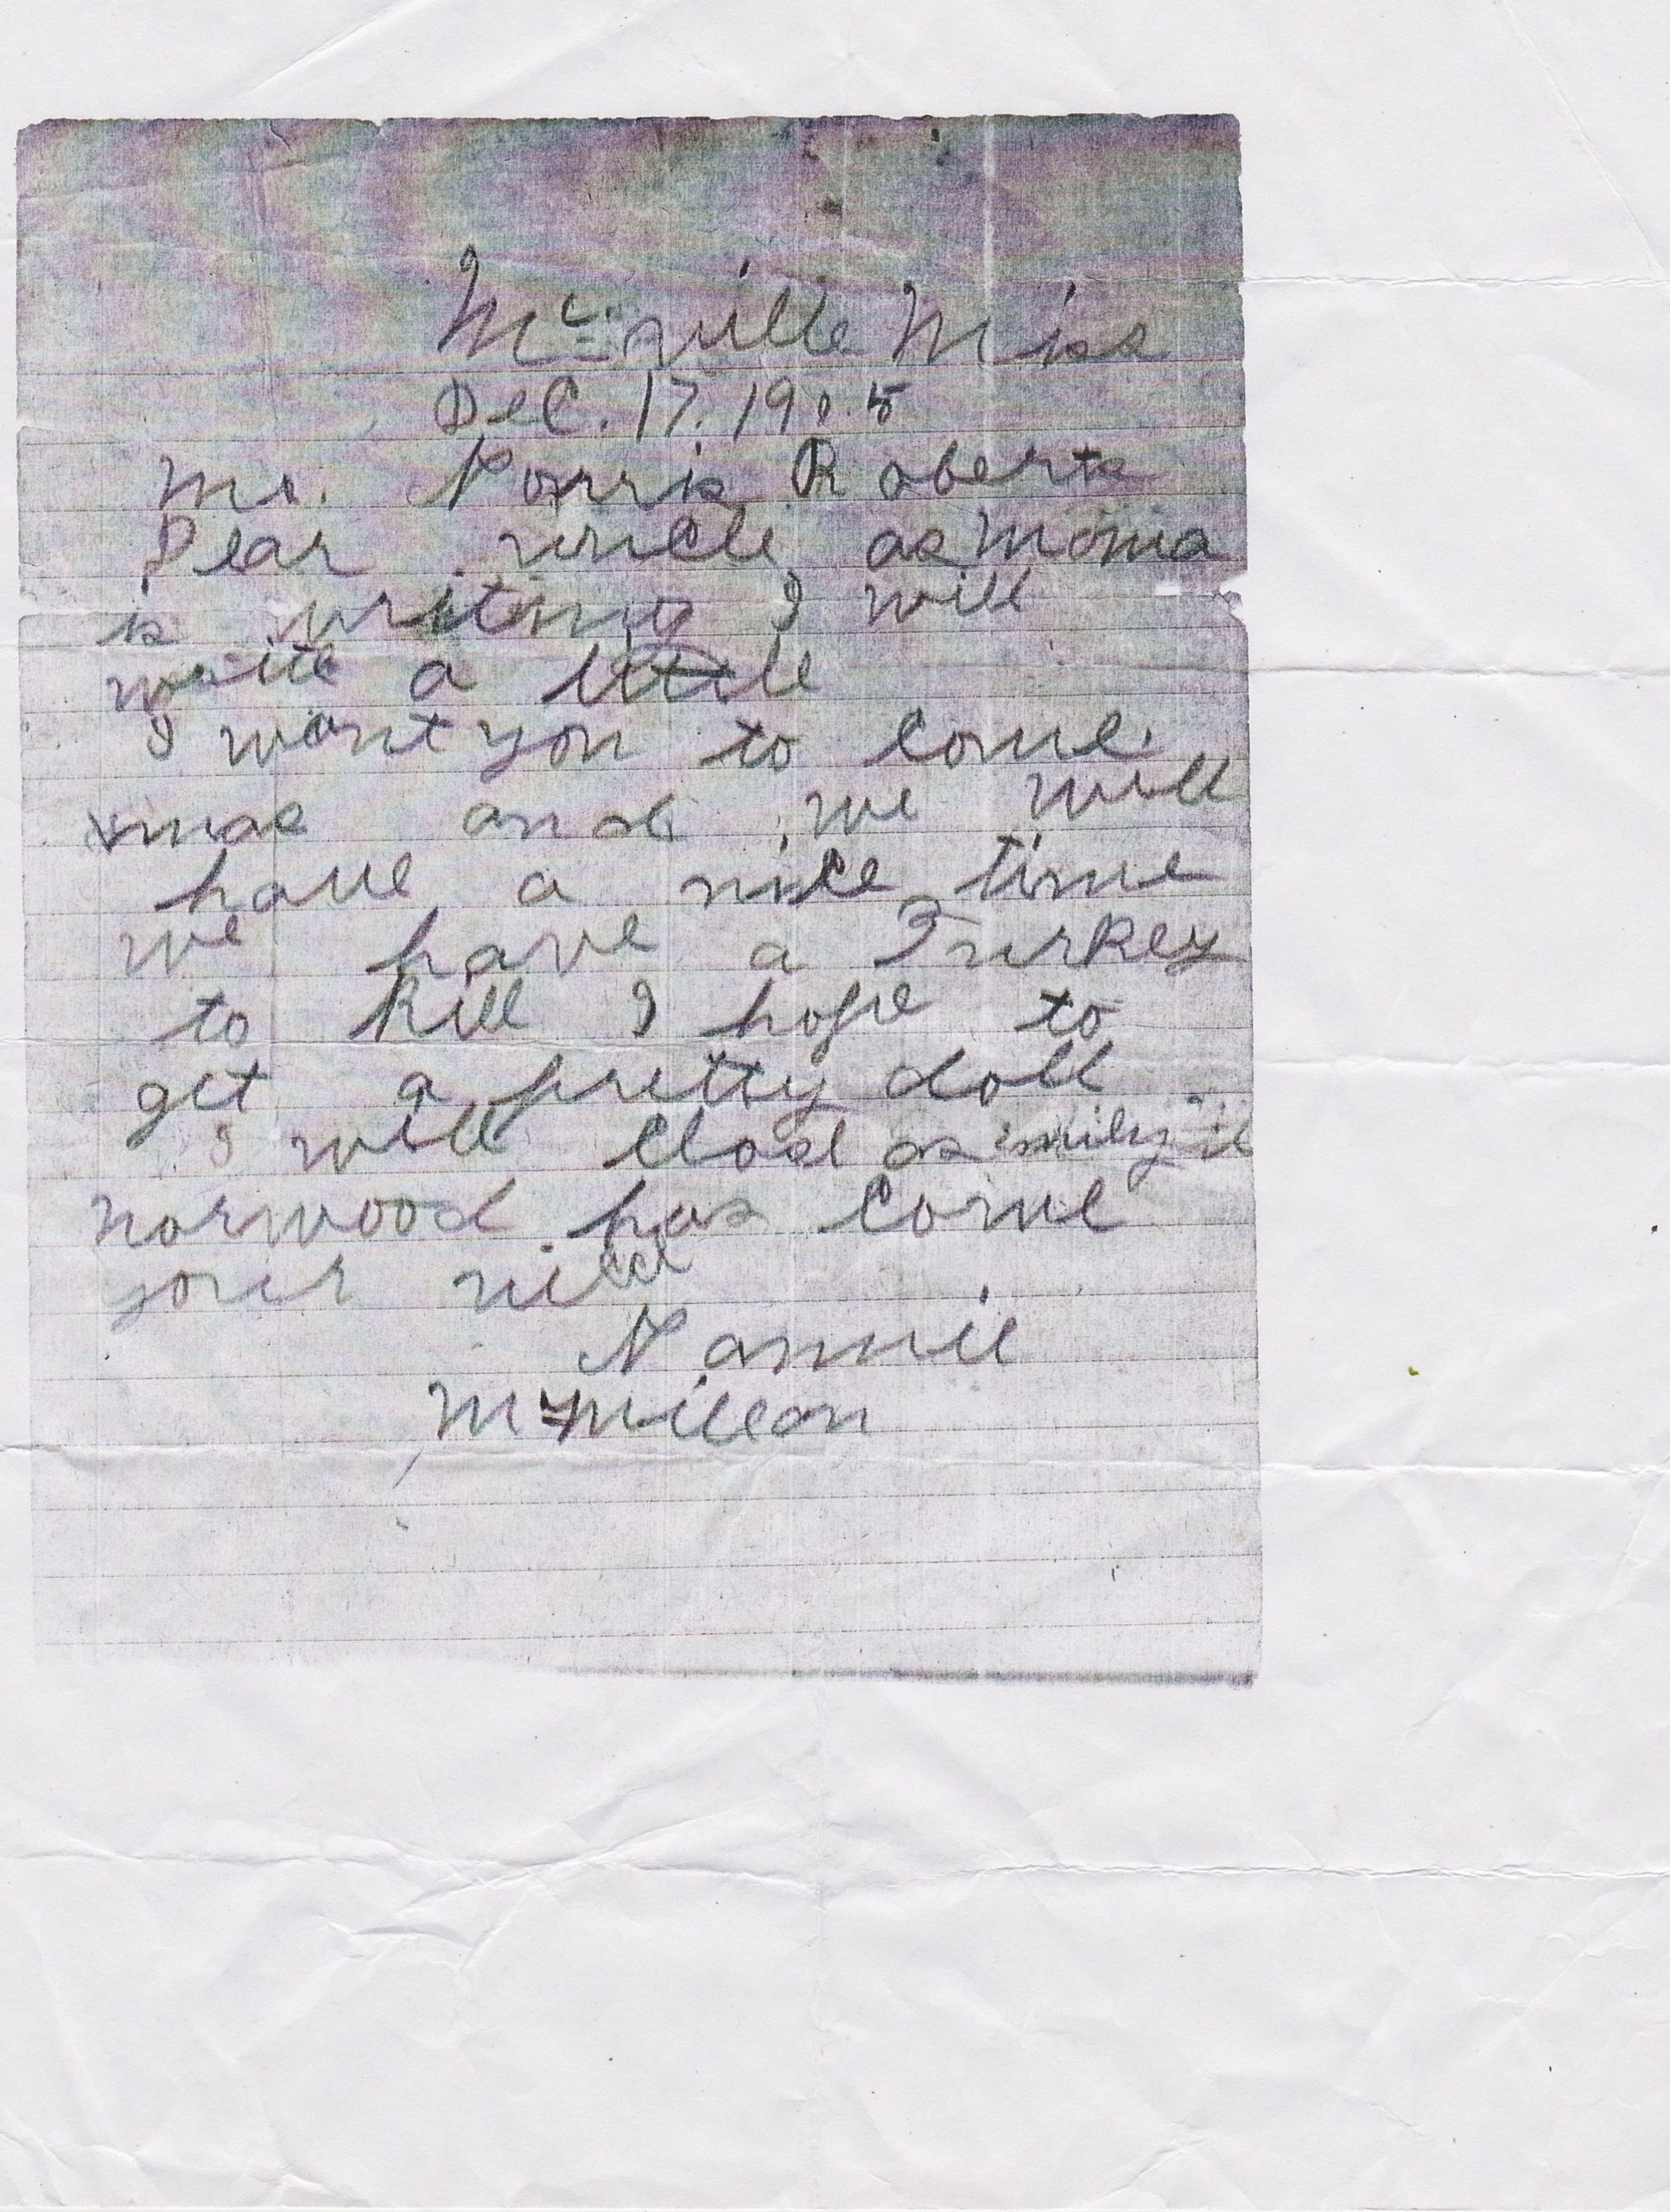 Mc.ville Miss
Dec. 17. 1905
Mr. Norris Roberts
Dear uncle as Moma
is writing I will
write a little
I want you to come
xmas and we will
have a nice time
we have a Turkey
to kill I hope to
get a pretty doll
I will close as
norwood has come
your niece
Nannie
McMillan